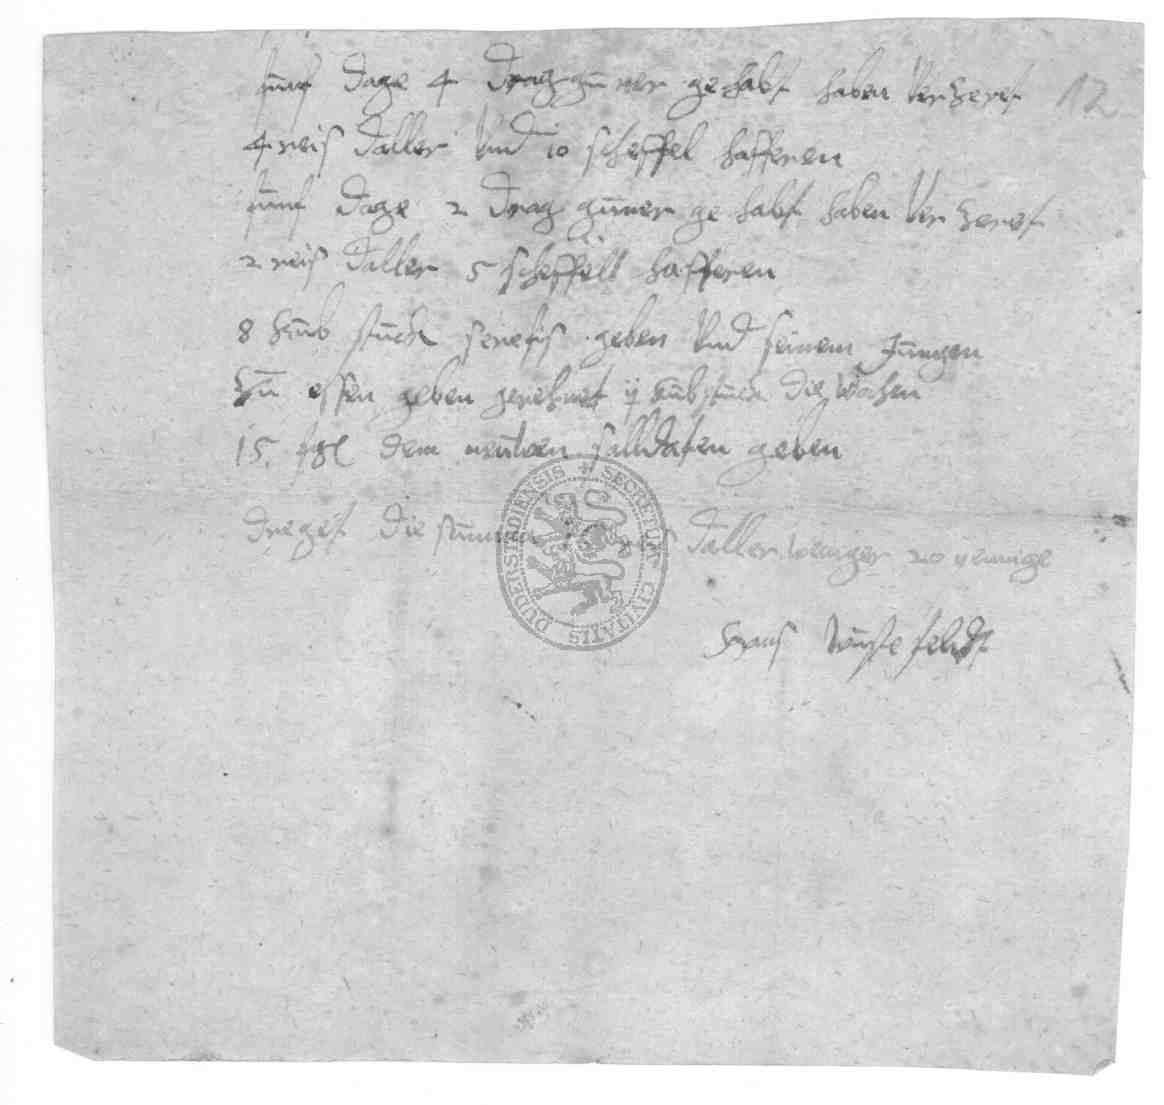 fünf dage 4 draggüner gehabt haben Verzeret 12
4 reis daller Vnd 10 scheffel hafferen
fünf dage 2 drag güner ge habt haben Ver zeret
2 reis daller 5 scheffell hafferen
8 kub stuck geben Vnd seinem Jungen
zu essen geben gerehnet ij kubstuck die wochen
15 dem salldaten geben
dreget die summa daller weniger 20 pennige
Hans wuste feldt
SECRETUM CIVITATIS DUDERSTADIENSIS